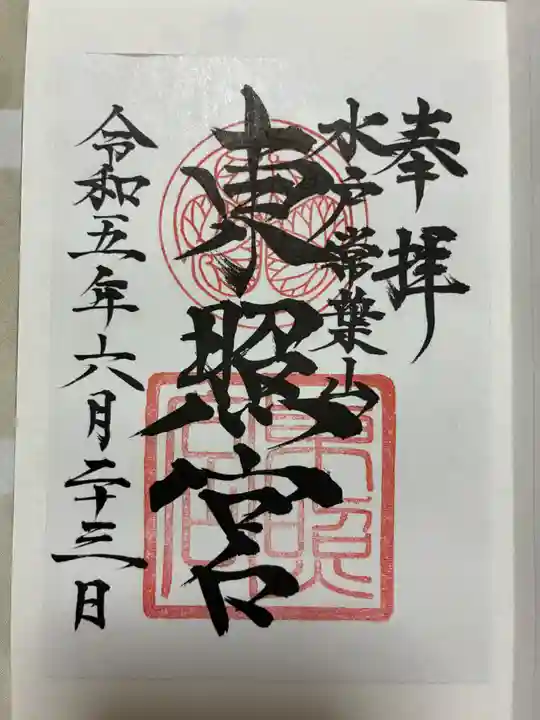 奉拝
水戸常葉山
東照宮
令和五年六月二十三日